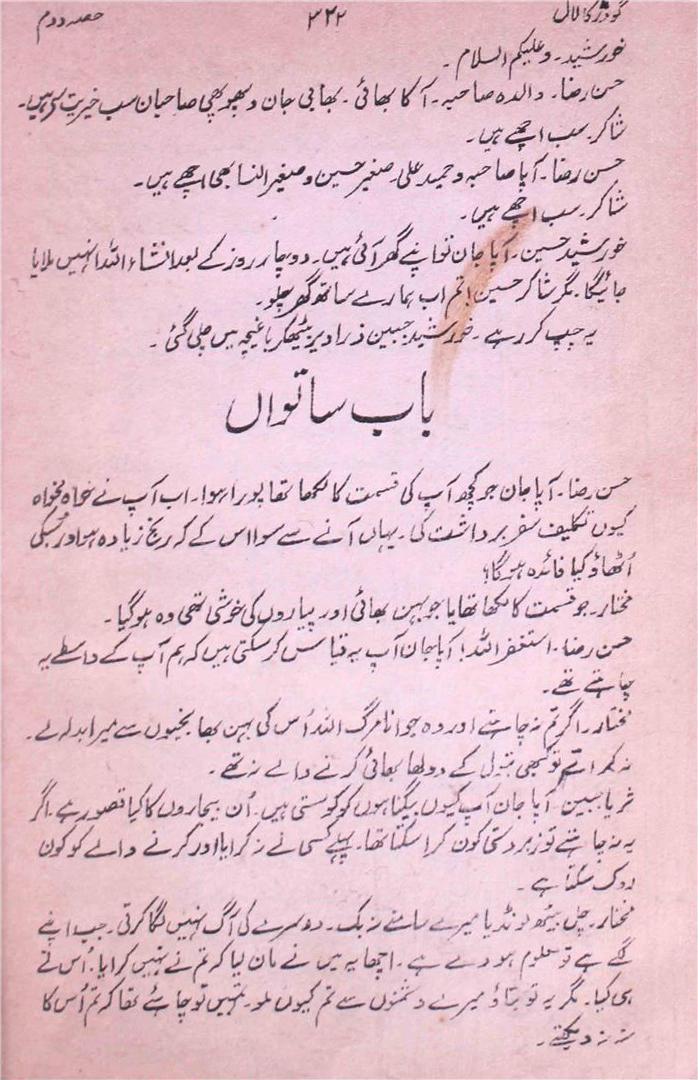 حصہ دوم ۳۲۲ گودڑ کا لال
خورشید۔ وعلیکم السلام۔
حسن رضا۔ والدہ صاحبہ۔ آکا بھائی۔ بھابی جان و پھوپھی صاحبان سب خیریت سے ہیں۔
شاکر۔ سب اچھے ہیں۔
حسن رضا۔ آپا صاحبہ و حمید علی۔ صغیر حسین و صغیر النسا بھی اچھے ہیں۔
شاکر۔ سب اچھے ہیں۔
خورشید حسین۔ آپا جان تو اپنے گھر آئی ہیں۔ دو چار روز کے بعد انشاء اللہ انہیں بلایا
جائیگا۔ مگر شاکر حسین! تم اب ہمارے ساتھ گھر چلو۔
یہ چپ کر رہے۔ خورشید جبین ذرا دیر بیٹھکر باغیچہ میں چلی گئی۔
باب ساتواں
حسن رضا۔ آپا جان جو کچھ آپ کی قسمت کا لکھا تھا پورا ہوا۔ اب آپ نے خواہ نخواہ
کیوں تکلیف سفر برداشت کی۔ یہاں آنے سے سوا اس کے کہ رنج زیادہ ہو اور سبکی
اُٹھاؤ کیا فائدہ ہو گا؟
مختار۔ جو قسمت کا لکھا تھا یا جو بہن بھائی اور پیاروں کی خوشی تھی وہ ہو گیا۔
حسن رضا۔ استغفر اللہ! آپا جان آپ یہ قیاس کر سکتی ہیں کہ ہم آپ کے واسطے یہ
چاہتے تھے۔
مختار۔ اگر تم نہ چاہتے اور وہ جوانا مرگ اللہ اُس کی بہن بھا بخیوں سے میرا بدلہ لے۔
نہ کراتے تو کبھی بتول کے دولھا بھائی کرنے والے نہ تھے۔
ثریا جبین۔ آپا جان آپ کیوں بیگناہوں کو کوستی ہیں۔ اُن بیچاروں کا کیا قصور ہے۔ اگر
یہ نہ چاہتے تو زبردستی کون کرا سکتا تھا۔ پہلے کسی نے نہ کرایا اور کرنے والے کو کون
روک سکتا ہے۔
مختار۔ چل بیٹھ لونڈیا میرے سامنے نہ بک۔ دوسرے کی آگ نہیں لگا کرتی۔ جب اپنے
لگے ہے تو معلوم ہووے ہے۔ اچھا یہ میں نے مان لیا کہ تم نے نہیں کرایا۔ اُس نے
ہی کیا۔ مگر یہ تو بتاؤ میرے دشمنوں سے تم کیوں ملو۔ تمہیں تو چاہئے تھا کہ تم اُس کا
نہ دیکھتے۔